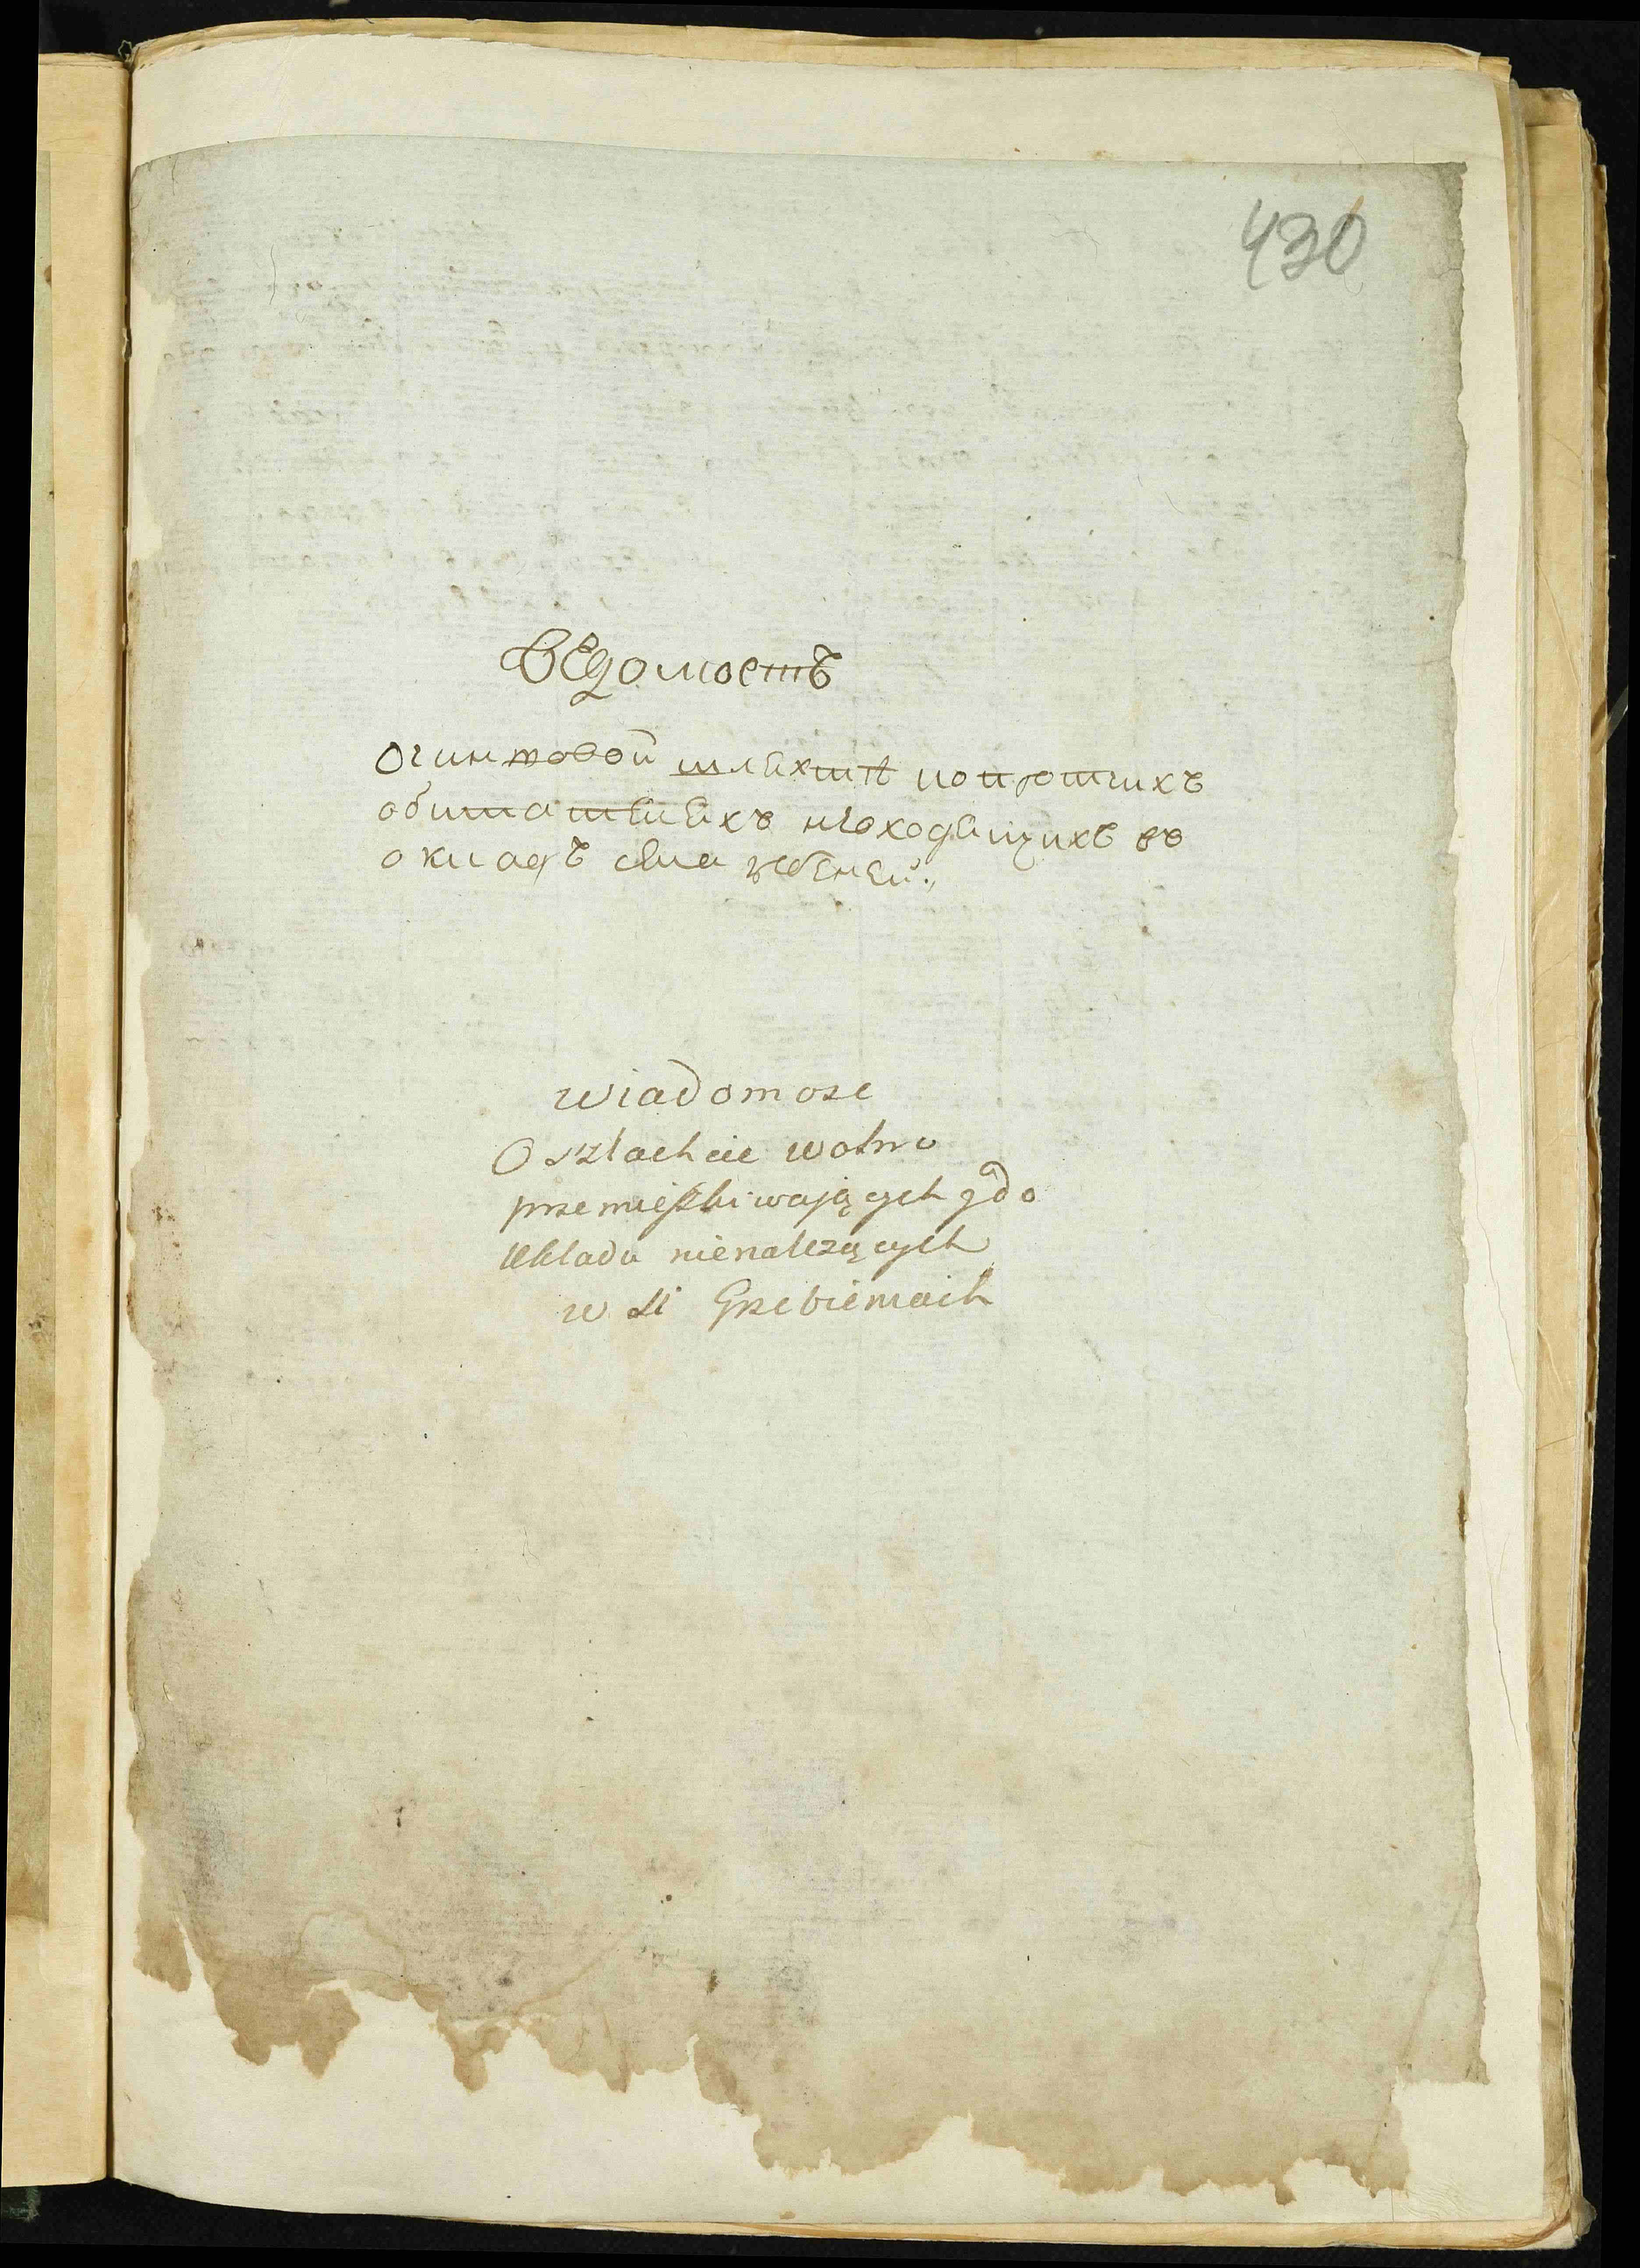 430
Ведомостъ
О чиншовой шляхте и о протчихъ
обитателяхъ невходящихъ въ
окладъ села
Wiadomosc
O szlachcie wolno
przemieszkiwających y do
Ukladu nienalezących
w si Grzebieniach